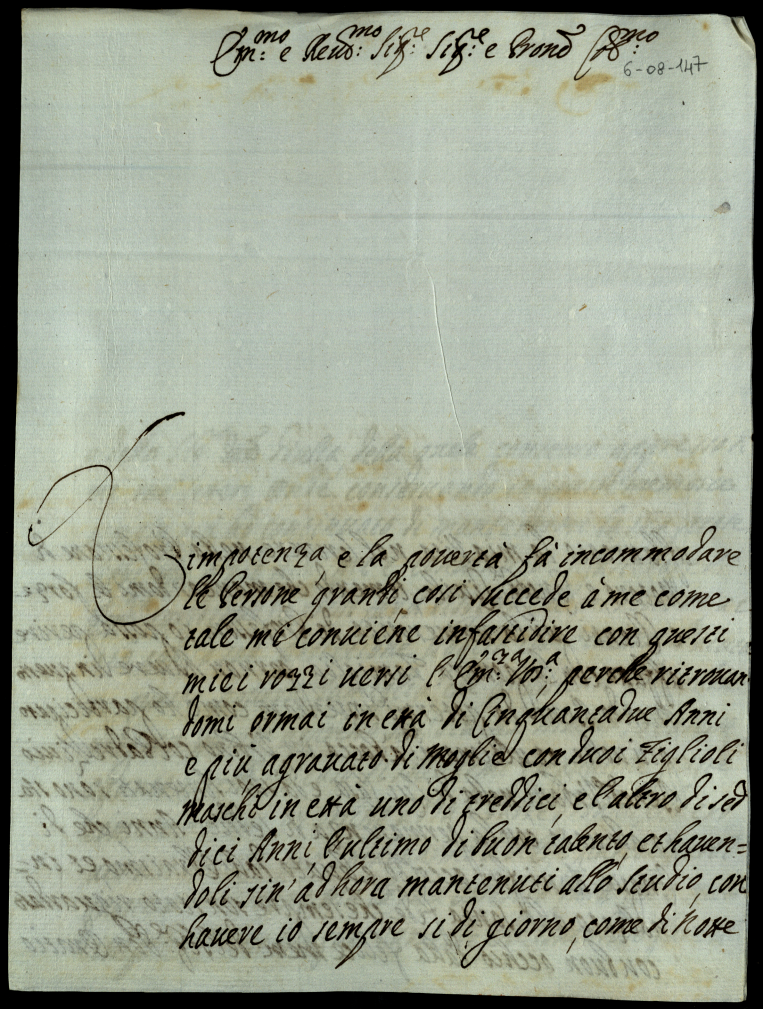 Em:mo e Reud:mo Sig:re Sig:re e Pron Col:mo
6-08-147
L'impotenza, e la povertà fà incommodare
le Persone grandi cosi succede à me come
tale mi conuiene infastidire con questi
miei rozzi uersi l'Em:za Vos:a perche ritrouan
domi ormai in età di Cinquantadue Anni
e più agrauato di Moglie con duoi Figlioli
maschi in età uno di treddici, e l'altro di sed
dici Anni, l'ultimo di buon talento, et hauen=
doli sin' ad hora mantenuti allo studio, con
hauere io sempre si di giorno, come di Notte